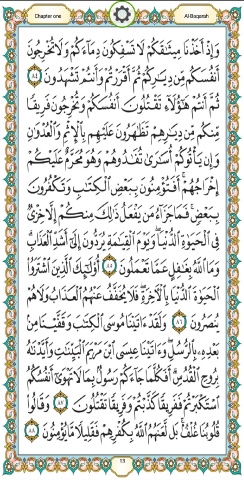 Chapter one
Al-Baqarah
وَإِذْ أَخَذْنَا مِيثَـٰقَكُمْ لَا تَسْفِكُونَ دِمَآءَكُمْ وَلَا تُخْرِجُونَ
أَنفُسَكُم مِّن دِيَـٰرِكُمْ ثُمَّ أَقْرَرْتُمْ وَأَنتُمْ تَشْهَدُونَ ٨٤
ثُمَّ أَنتُمْ هَـٰٓؤُلَآءِ تَقْتُلُونَ أَنفُسَكُمْ وَتُخْرِجُونَ فَرِيقًا
مِّنكُم مِّن دِيَـٰرِهِمْ تَظَـٰهَرُونَ عَلَيْهِم بِٱلْإِثْمِ وَٱلْعُدْوَٰنِ
وَإِن يَأْتُوكُمْ أُسَـٰرَىٰ تُفَـٰدُوهُمْ وَهُوَ مُحَرَّمٌ عَلَيْكُمْ
إِخْرَاجُهُمْ ۚ أَفَتُؤْمِنُونَ بِبَعْضِ ٱلْكِتَـٰبِ وَتَكْفُرُونَ
بِبَعْضٍ ۚ فَمَا جَزَآءُ مَن يَفْعَلُ ذَٰلِكَ مِنكُمْ إِلَّا خِزْىٌ
فِى ٱلْحَيَوٰةِ ٱلدُّنْيَا ۖ وَيَوْمَ ٱلْقِيَـٰمَةِ يُرَدُّونَ إِلَىٰٓ أَشَدِّ ٱلْعَذَابِ ۗ
وَمَا ٱللَّهُ بِغَـٰفِلٍ عَمَّا تَعْمَلُونَ ٨٥ أُو۟لَـٰٓئِكَ ٱلَّذِينَ ٱشْتَرَوُا۟
ٱلْحَيَوٰةَ ٱلدُّنْيَا بِٱلْـَٔاخِرَةِ ۖ فَلَا يُخَفَّفُ عَنْهُمُ ٱلْعَذَابُ وَلَا هُمْ
يُنصَرُونَ ٨٦ وَلَقَدْ ءَاتَيْنَا مُوسَى ٱلْكِتَـٰبَ وَقَفَّيْنَا مِنۢ
بَعْدِهِۦ بِٱلرُّسُلِ ۖ وَءَاتَيْنَا عِيسَى ٱبْنَ مَرْيَمَ ٱلْبَيِّنَـٰتِ وَأَيَّدْنَـٰهُ
بِرُوحِ ٱلْقُدُسِ ۗ أَفَكُلَّمَا جَآءَكُمْ رَسُولٌۢ بِمَا لَا تَهْوَىٰٓ أَنفُسُكُمُ
ٱسْتَكْبَرْتُمْ فَفَرِيقًا كَذَّبْتُمْ وَفَرِيقًا تَقْتُلُونَ ٨٧ وَقَالُوا۟
قُلُوبُنَا غُلْفٌۢ ۚ بَل لَّعَنَهُمُ ٱللَّهُ بِكُفْرِهِمْ فَقَلِيلًا مَّا يُؤْمِنُونَ ٨٨
13